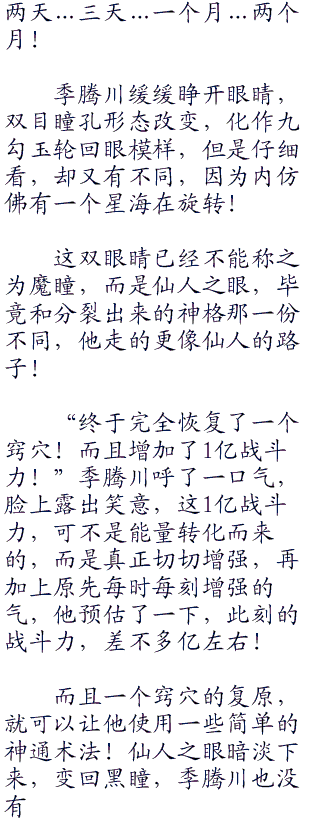 两天…三天…一个月…两个
月！
季腾川缓缓睁开眼睛，
双目瞳孔形态改变，化作九
勾玉轮回眼模样，但是仔细
看，却又有不同，因为内仿
佛有一个星海在旋转！
这双眼睛已经不能称之
为魔瞳，而是仙人之眼，毕
竟和分裂出来的神格那一份
不同，他走的更像仙人的路
子！
“终于完全恢复了一个
窍穴！而且增加了1亿战斗
力！”季腾川呼了一口气，
脸上露出笑意，这1亿战斗
力，可不是能量转化而来
的，而是真正切切增强，再
加上原先每时每刻增强的
气，他预估了一下，此刻的
战斗力，差不多亿左右！
而且一个窍穴的复原，
就可以让他使用一些简单的
神通术法！仙人之眼暗淡下
来，变回黑瞳，季腾川也没
有